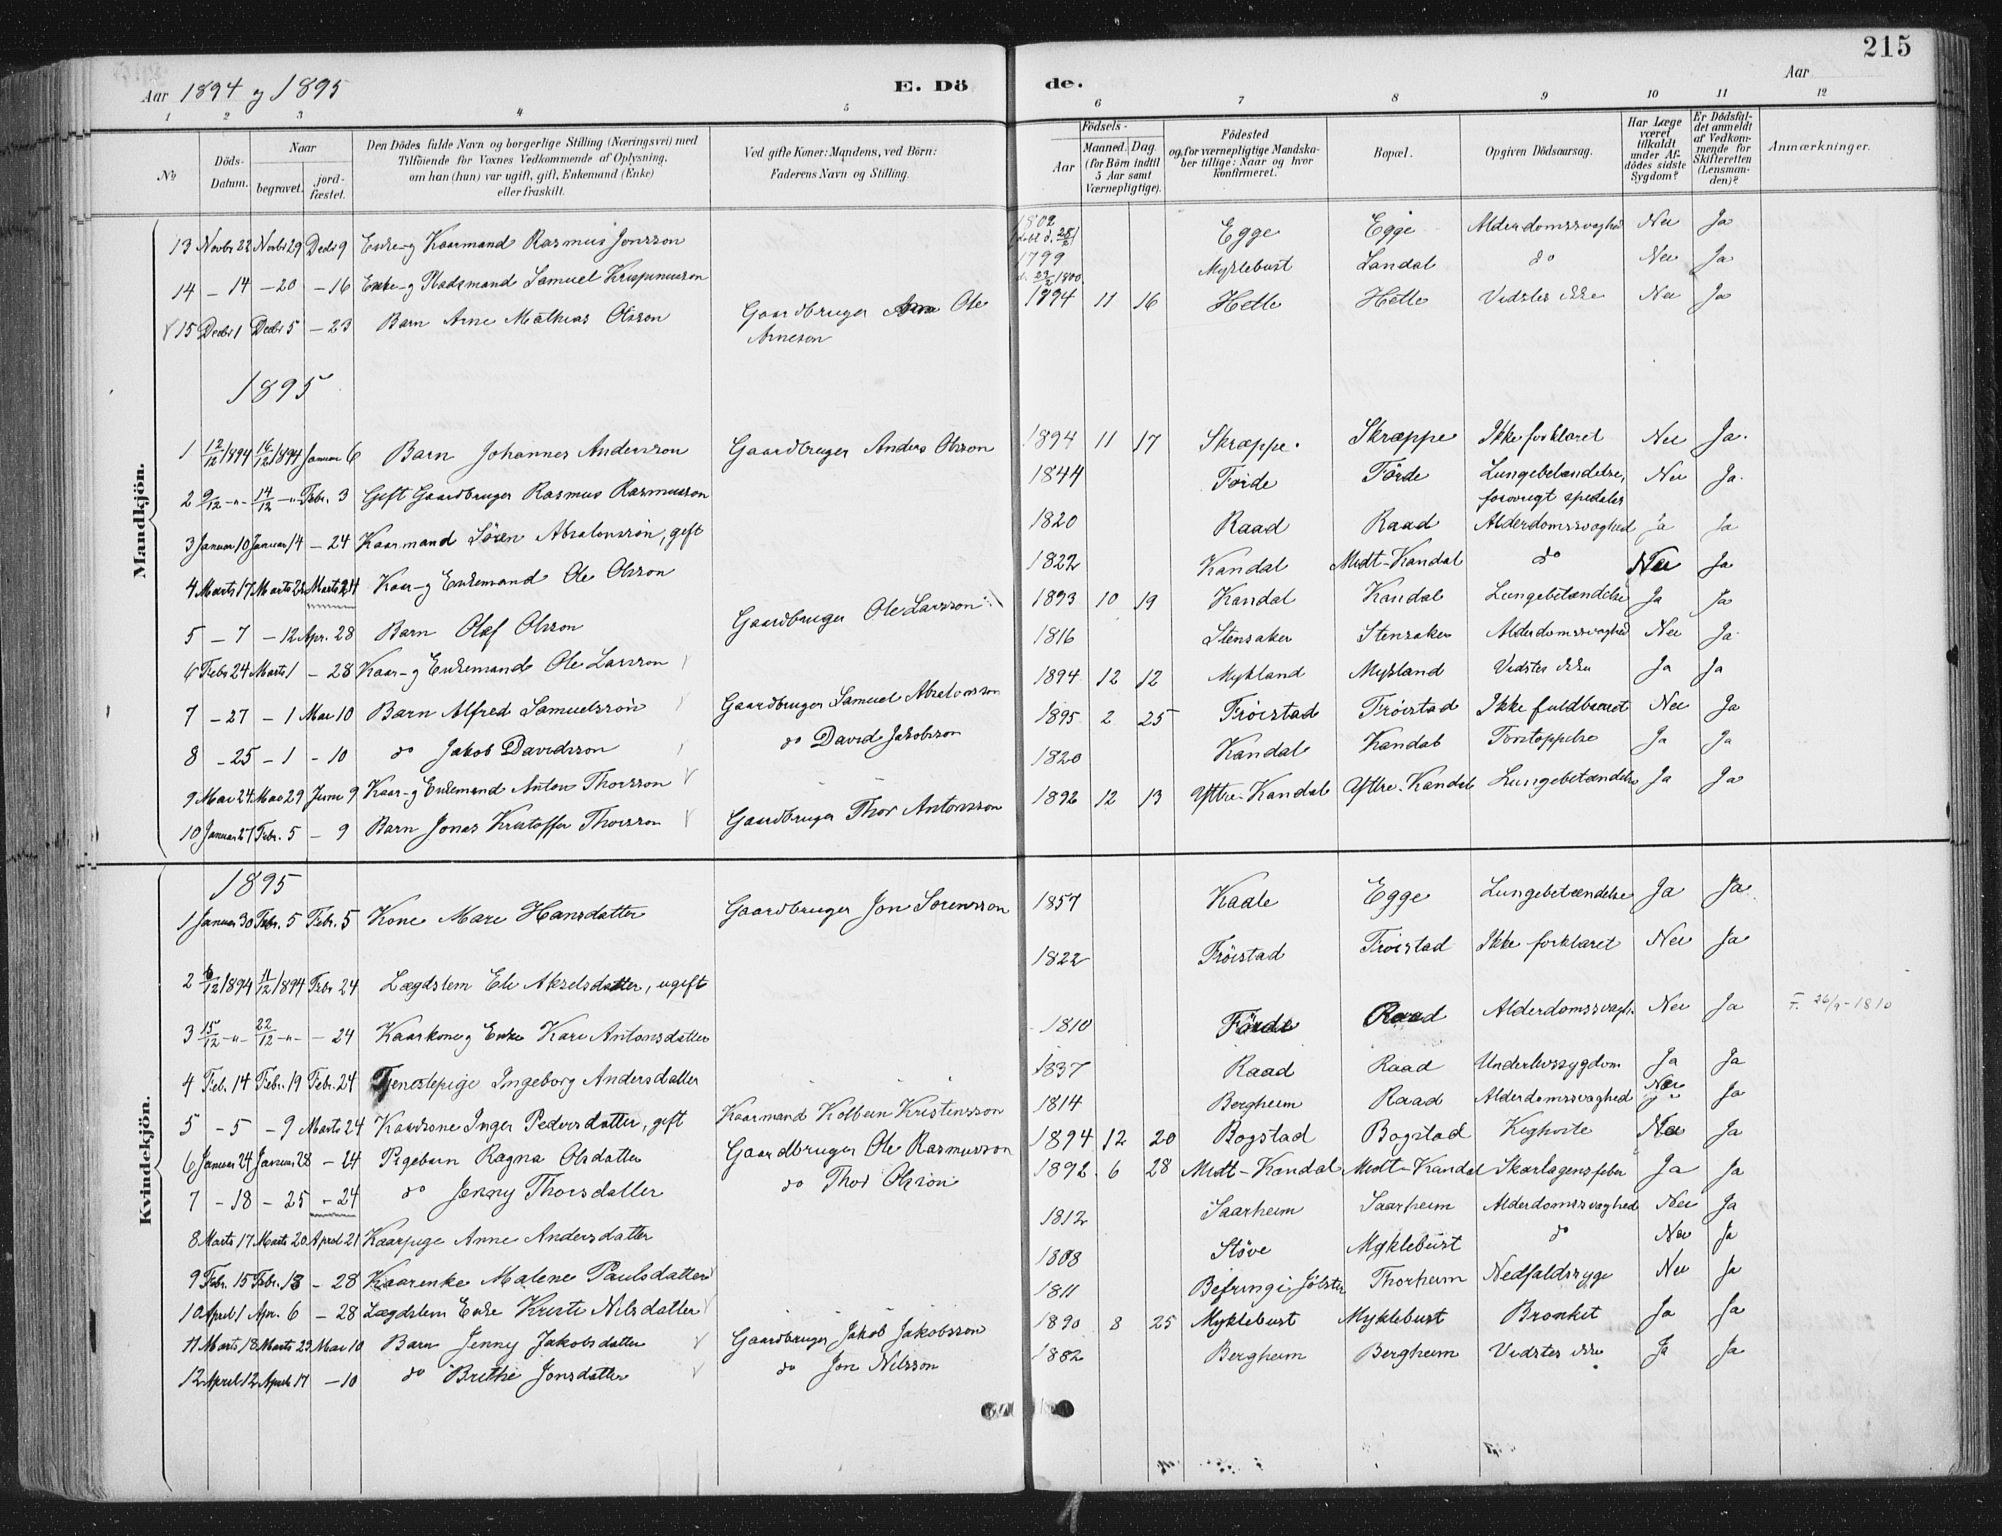 215
Aar 1894 og 1895
E. Dö de.
Aar
1 2 3 4 5 6 7 8 9 10 11 12
No
Döds-Datum.
Naar
begravet.
jord-fæstet.
Den Dödes fulde Navn og borgerlige Stilling (Næringsvei) med
Tilföiende for Voxnes Vedkommende af Oplysning,
om han (hun) var ugift, gift, Enkemand (Enke)
eller fraskilt.
Ved gifte Koner: Mandens, ved Börn:
Faderens Navn og Stilling.
Födsels-
Aar
Maaned. Dag.
(for Börn indtil
5 Aar samt
Værnepligtige).
Födested
og for værnepligtige Mandska-
ber tillige: Naar og hvor
konfirmeret.
Bopæl.
Opgiven Dödsaarsag.
Har Læge
været
tilkaldt
under Af-
dödes sidste
Sygdom?
Er Dödsfal-
det anmeldt
af Vedkom-
mende for
Skifteretten
(Lensman-
den)?
Anmærkninger.
Mandkjön.
13 Novbr 22 Novbr 29 Decbr 9 Enke- og Kaarmand Rasmus Jonsson 1802 Egge Egge Alderdomssvaghed Nei Ja
14 - 14 - 20 - 16 Enke- og Pladsmand Samuel Krispinusson 1799 Myklebust Landal do Nei Ja
15 Decbr 1 Decbr 5 - 23 Barn Arne Mathias Olsson Gaardbruger Ole Arneson 1894 11 16 Hetle Hetle Vidstes ikke Nei Ja
1895
1 12/12 1894 16/12 1894 Januar 6 Barn Johannes Andersson Gaardbruger Anders Olsson 1894 11 17 Skræppe. Skræppe Ikke forklaret Nei Ja.
2 9/12 -"- 14/12 -"- Febr. 3 Gift Gaardbruger Rasmus Rasmusson 1844 Förde Förde Lungebetændelse, forøvrigt spedalsk Nei Ja.
3 Januar 10 Januar 14 - 24 Kaarmand Sören Absalonssön, gift 1820 Raad Raad Alderdomssvaghed Ja Ja
4 Marts 17 Marts 22 Marts 24 Kaar- og Enkemand Ole Olsson 1822 Kandal Midt-Kandal do Nei Ja
5 - 7 - 12 Apr. 28 Barn Olaf Olsson Gaardbruger Ole Larsson 1893 10 19 Kandal Kandal Lungebetændelse Ja Ja
6 Febr 24 Marts 1 - 28 Kaar- og Enkemand Ole Larsson 1816 Stensaker Stensaker Alderdomssvaghed Nei Ja
7 - 27 - 1 Mai 10 Barn Alfred Samuelssön Gaardbruger Samuel Absalonsson 1894 12 12 Mykland Mykland Vidstes ikke Ja Ja
8 - 25 - 1 - 10 do Jakob Davidsson do David Jakobsson 1895 2 25 Fröistad Fröistad Ikke fuldbaaret Nei Ja
9 Mai 24 Mai 29 Juni 9 Kaar- og Enkemand Anton Thorsson 1820 Kandal Kandal Forstoppelse Ja Ja
10 Januar 27 Febr. 5 - 9 Barn Jonas Kristoffer Thorsson Gaardbruger Thor Antonsson 1892 12 13 Yttre-Kandal Yttre-Kandal Lungebetændelse Ja Ja
Kvindekjön.
1895
1 Januar 30 Febr. 5 Febr. 5 Kone Mari Hansdatter Gaardbruger Jon Sörensson 1857 Kaale Egge Lungebetændelse Ja Ja
2 6/12 1894 11/12 1894 Febr 24 Lægdslem Eli Akselsdatter, ugift 1822 Fröistad Fröistad Ikke forklaret Nei Ja
3 15/12 -"- 22/12 -"- - 24 Kaarkone og Enke Kari Antonsdatter 1810 Förde Raad Alderdomssvagh. Nei Ja F. 26/9-1810
4 Feb. 14 Febr. 19 Febr. 24 Tjenestepige Ingeborg Andersdatter 1837 Raad Raad Underlivssygdom Ja Ja
5 - 5 - 9 Marts 24 Kaarkone Inger Pedersdatter, gift Kaarmand Kolbein Kristensson 1814 Bergheim Raad Alderdomssvaghed Nei Ja
6 Januar 24 Januar 28 - 24 Pigebarn Ragna Olsdatter Gaardbruger Ole Rasmusson 1894 12 20 Bogstad Bogstad Kighoste Nei Ja
7 - 18 - 25 - 24 do Jenny Thorsdatter do Thor Olsson 1892 6 28 Midt-Kandal Midt-Kandal Skarlagensfeber Ja Ja
8 Marts 17 Marts 20 April 21 Kaarpige Anne Andersdatter 1812 Saarheim Saarheim Alderdomssvaghed Nei Ja
9 Febr. 15 Febr. 18 - 28 Kaarenke Malene Paulsdatter 1808 Stöve Myklebust do Nei Ja
10 April 1 Apr. 6 - 28 Lægdslem Enke Kristi Nilsdatter 1811 Befring i Jölster Thorheim Nedfaldssyge Nei Ja
11 Marts 18 Marts 23 Mai 10 Barn Jenny Jakobsdatter Gaardbruger Jakob Jakobsson 1890 8 25 Myklebust Myklebust Bronket Ja Ja
12 April 12 April 17 - 10 do Brithe Jonsdatter do Jon Nilsson 1882 Bergheim Bergheim Vidstes ikke Ja Ja